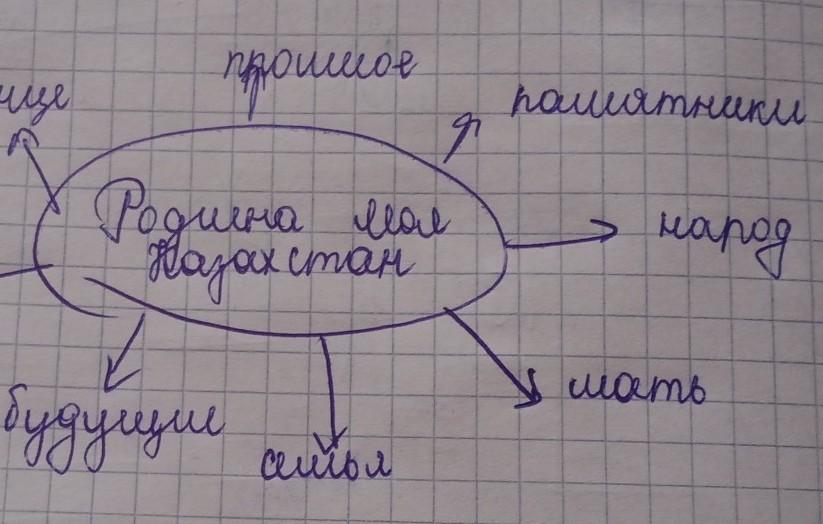 прошлое
памятники
Родина моя
Казахстан
народ
мать
будущие
семья